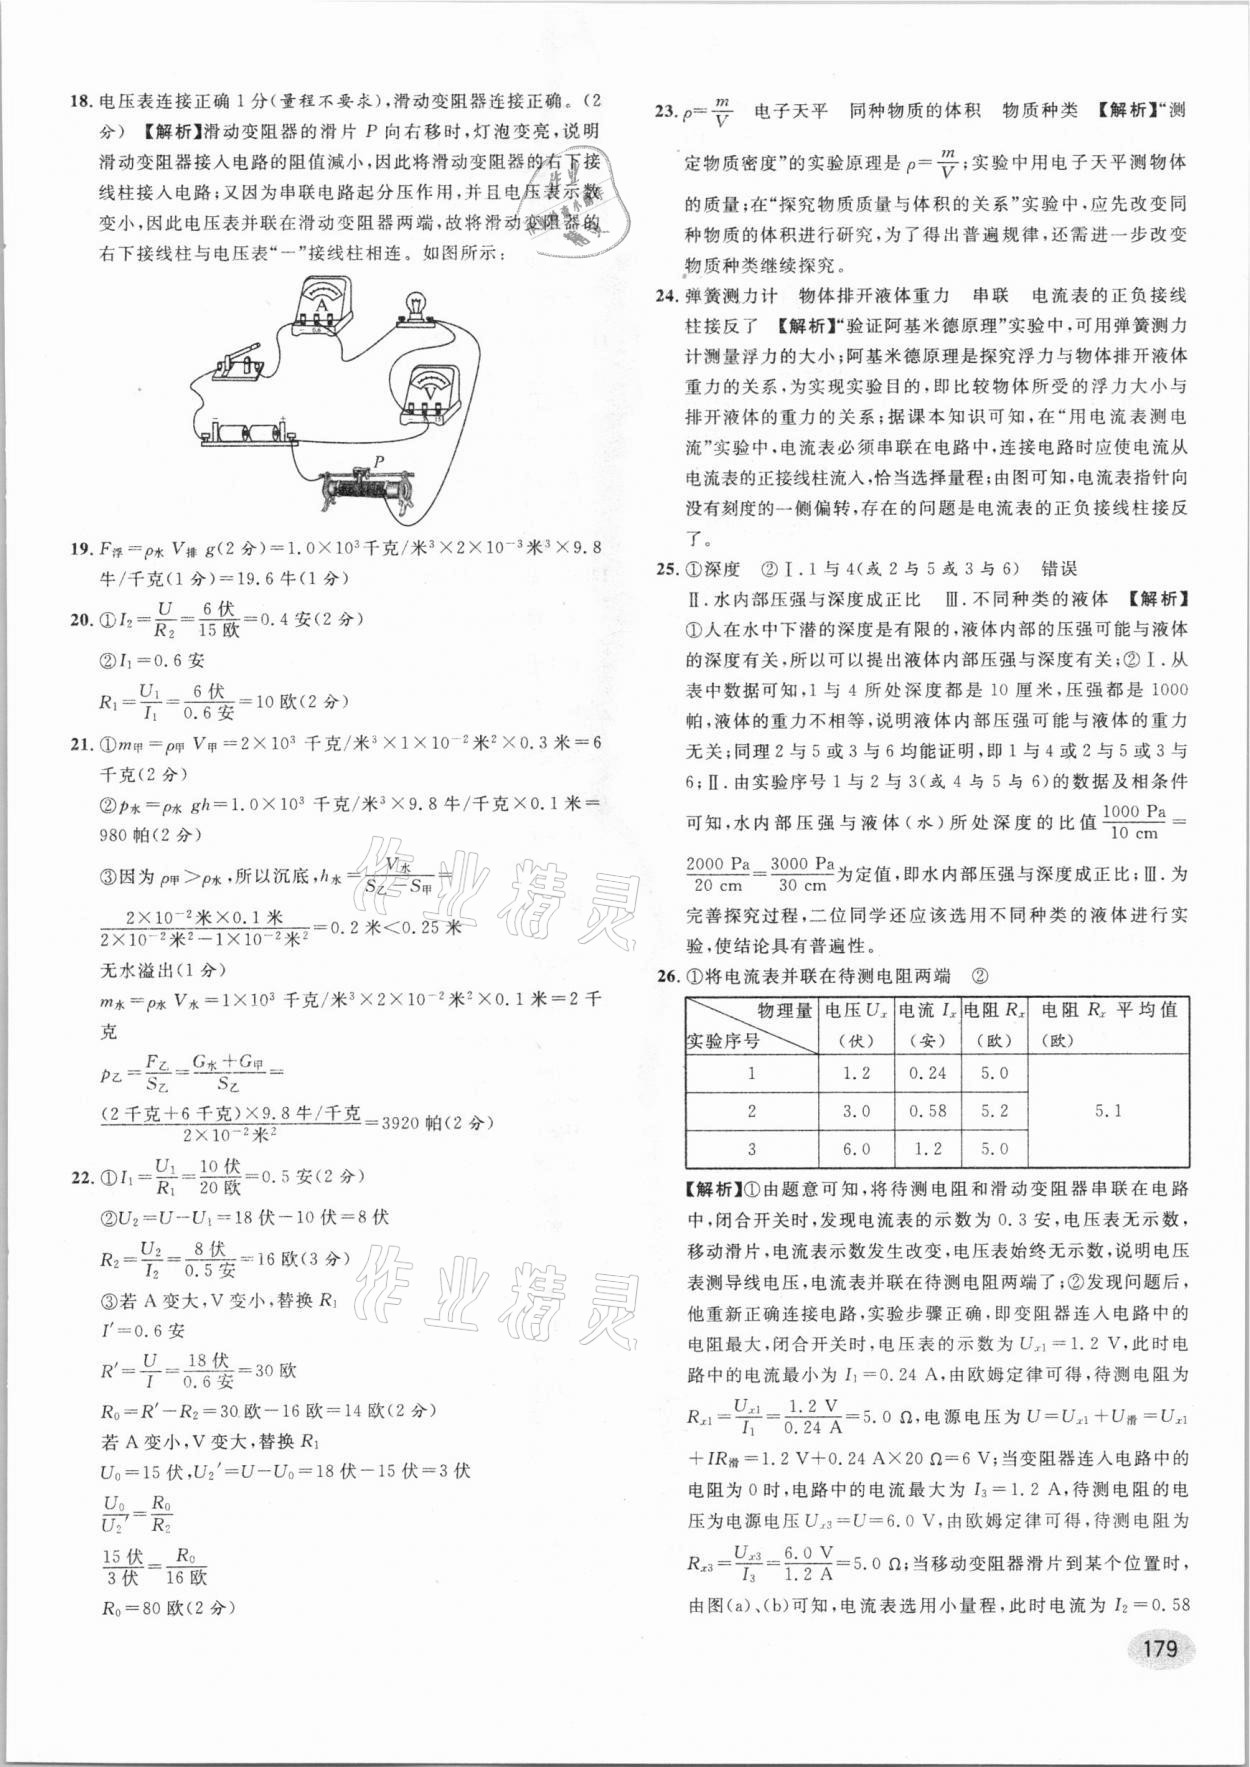 18. 电压表连接正确1分(量程不要求),滑动变阻器连接正确。(2
分) 【解析】滑动变阻器的滑片 P 向右移时,灯泡变亮,说明
滑动变阻器接入电路的阻值减小,因此将滑动变阻器的右下接
线柱接入电路;又因为串联电路起分压作用,并且电压表示数
变小,因此电压表并联在滑动变阻器两端,故将滑动变阻器的
右下接线柱与电压表“－”接线柱相连。如图所示:
A
－ 0.6
V
－ ＋
P
19. F浮＝ρ水 V排 g(2分)＝1.0×10³千克/米³×2×10⁻³米³×9.8
牛/千克(1分)＝19.6牛(1分)
20. ①I₂＝U/R₂＝6伏/15欧＝0.4安(2分)
②I₁＝0.6安
R₁＝U₁/I₁＝6伏/0.6安＝10欧(2分)
21. ①m甲＝ρ甲 V甲＝2×10³ 千克/米³×1×10⁻²米²×0.3米＝6
千克(2分)
②p水＝ρ水 gh＝1.0×10³ 千克/米³×9.8牛/千克×0.1米＝
980帕(2分)
③因为 ρ甲＞ρ水,所以沉底,h水＝V水/(S乙－S甲)＝
(2×10⁻²米×0.1米)/(2×10⁻²米²－1×10⁻²米²)＝0.2米＜0.25米
无水溢出(1分)
m水＝ρ水 V水＝1×10³ 千克/米³×2×10⁻²米×0.1米＝2千
克
p乙＝F乙/S乙＝(G水＋G甲)/S乙＝
(2千克＋6千克)×9.8牛/千克/2×10⁻²米²＝3920帕(2分)
22. ①I₁＝U₁/R₁＝10伏/20欧＝0.5安(2分)
②U₂＝U－U₁＝18伏－10伏＝8伏
R₂＝U₂/I₂＝8伏/0.5安＝16欧(3分)
③若 A 变大,V 变小,替换 R₁
I′＝0.6安
R′＝U/I＝18伏/0.6安＝30欧
R₀＝R′－R₂＝30欧－16欧＝14欧(2分)
若 A 变小,V 变大,替换 R₁
U₀＝15伏,U₂′＝U－U₀＝18伏－15伏＝3伏
U₀/U₂′＝R₀/R₂
15伏/3伏＝R₀/16欧
R₀＝80欧(2分)
23. ρ＝m/V 电子天平 同种物质的体积 物质种类 【解析】“测
定物质密度”的实验原理是 ρ＝m/V;实验中用电子天平测物体
的质量;在“探究物质质量与体积的关系”实验中,应先改变同
种物质的体积进行研究,为了得出普遍规律,还需进一步改变
物质种类继续探究。
24. 弹簧测力计 物体排开液体重力 串联 电流表的正负接线
柱接反了 【解析】“验证阿基米德原理”实验中,可用弹簧测力
计测量浮力的大小;阿基米德原理是探究浮力与物体排开液体
重力的关系,为实现实验目的,即比较物体所受的浮力大小与
排开液体的重力的关系;据课本知识可知,在“用电流表测电
流”实验中,电流表必须串联在电路中,连接电路时应使电流从
电流表的正接线柱流入,恰当选择量程;由图可知,电流表指针向
没有刻度的一侧偏转,存在的问题是电流表的正负接线柱接反
了。
25. ①深度 ②Ⅰ.1与4(或2与5或3与6) 错误
Ⅱ.水内部压强与深度成正比 Ⅲ.不同种类的液体 【解析】
①人在水中下潜的深度是有限的,液体内部的压强可能与液体
的深度有关,所以可以提出液体内部压强与深度有关;②Ⅰ.从
表中数据可知,1与4所处深度都是10厘米,压强都是1000
帕,液体的重力不相等,说明液体内部压强可能与液体的重力
无关;同理2与5或3与6均能证明,即1与4或2与5或3与
6;Ⅱ.由实验序号1与2与3(或4与5与6)的数据及相条件
可知,水内部压强与液体(水)所处深度的比值1000 Pa/10 cm＝
2000 Pa/20 cm＝3000 Pa/30 cm为定值,即水内部压强与深度成正比;Ⅲ.为
完善探究过程,二位同学还应该选用不同种类的液体进行实
验,使结论具有普遍性。
26. ①将电流表并联在待测电阻两端 ②
物理量 电压Uₓ 电流Iₓ 电阻Rₓ 电阻 Rₓ 平均值
实验序号 (伏) (安) (欧) (欧)
1 1.2 0.24 5.0
2 3.0 0.58 5.2 5.1
3 6.0 1.2 5.0
【解析】①由题意可知,将待测电阻和滑动变阻器串联在电路
中,闭合开关时,发现电流表的示数为0.3安,电压表无示数,
移动滑片,电流表示数发生改变,电压表始终无示数,说明电压
表测导线电压,电流表并联在待测电阻两端了;②发现问题后,
他重新正确连接电路,实验步骤正确,即变阻器连入电路中的
电阻最大,闭合开关时,电压表的示数为Uₓ₁＝1.2 V,此时电
路中的电流最小为 I₁＝0.24 A,由欧姆定律可得,待测电阻为
Rₓ₁＝Uₓ₁/I₁＝1.2 V/0.24 A＝5.0 Ω,电源电压为 U＝Uₓ₁＋U滑＝Uₓ₁
＋IR滑＝1.2 V＋0.24 A×20 Ω＝6 V;当变阻器连入电路中的
电阻为0时,电路中的电流最大为 I₃＝1.2 A,待测电阻的电
压为电源电压Uₓ₃＝U＝6.0 V,由欧姆定律可得,待测电阻为
Rₓ₃＝Uₓ₃/I₃＝6.0 V/1.2 A＝5.0 Ω;当移动变阻器滑片到某个位置时,
由图(a)、(b)可知,电流表选用小量程,此时电流为 I₂＝0.58
179
作业精灵
作业精灵